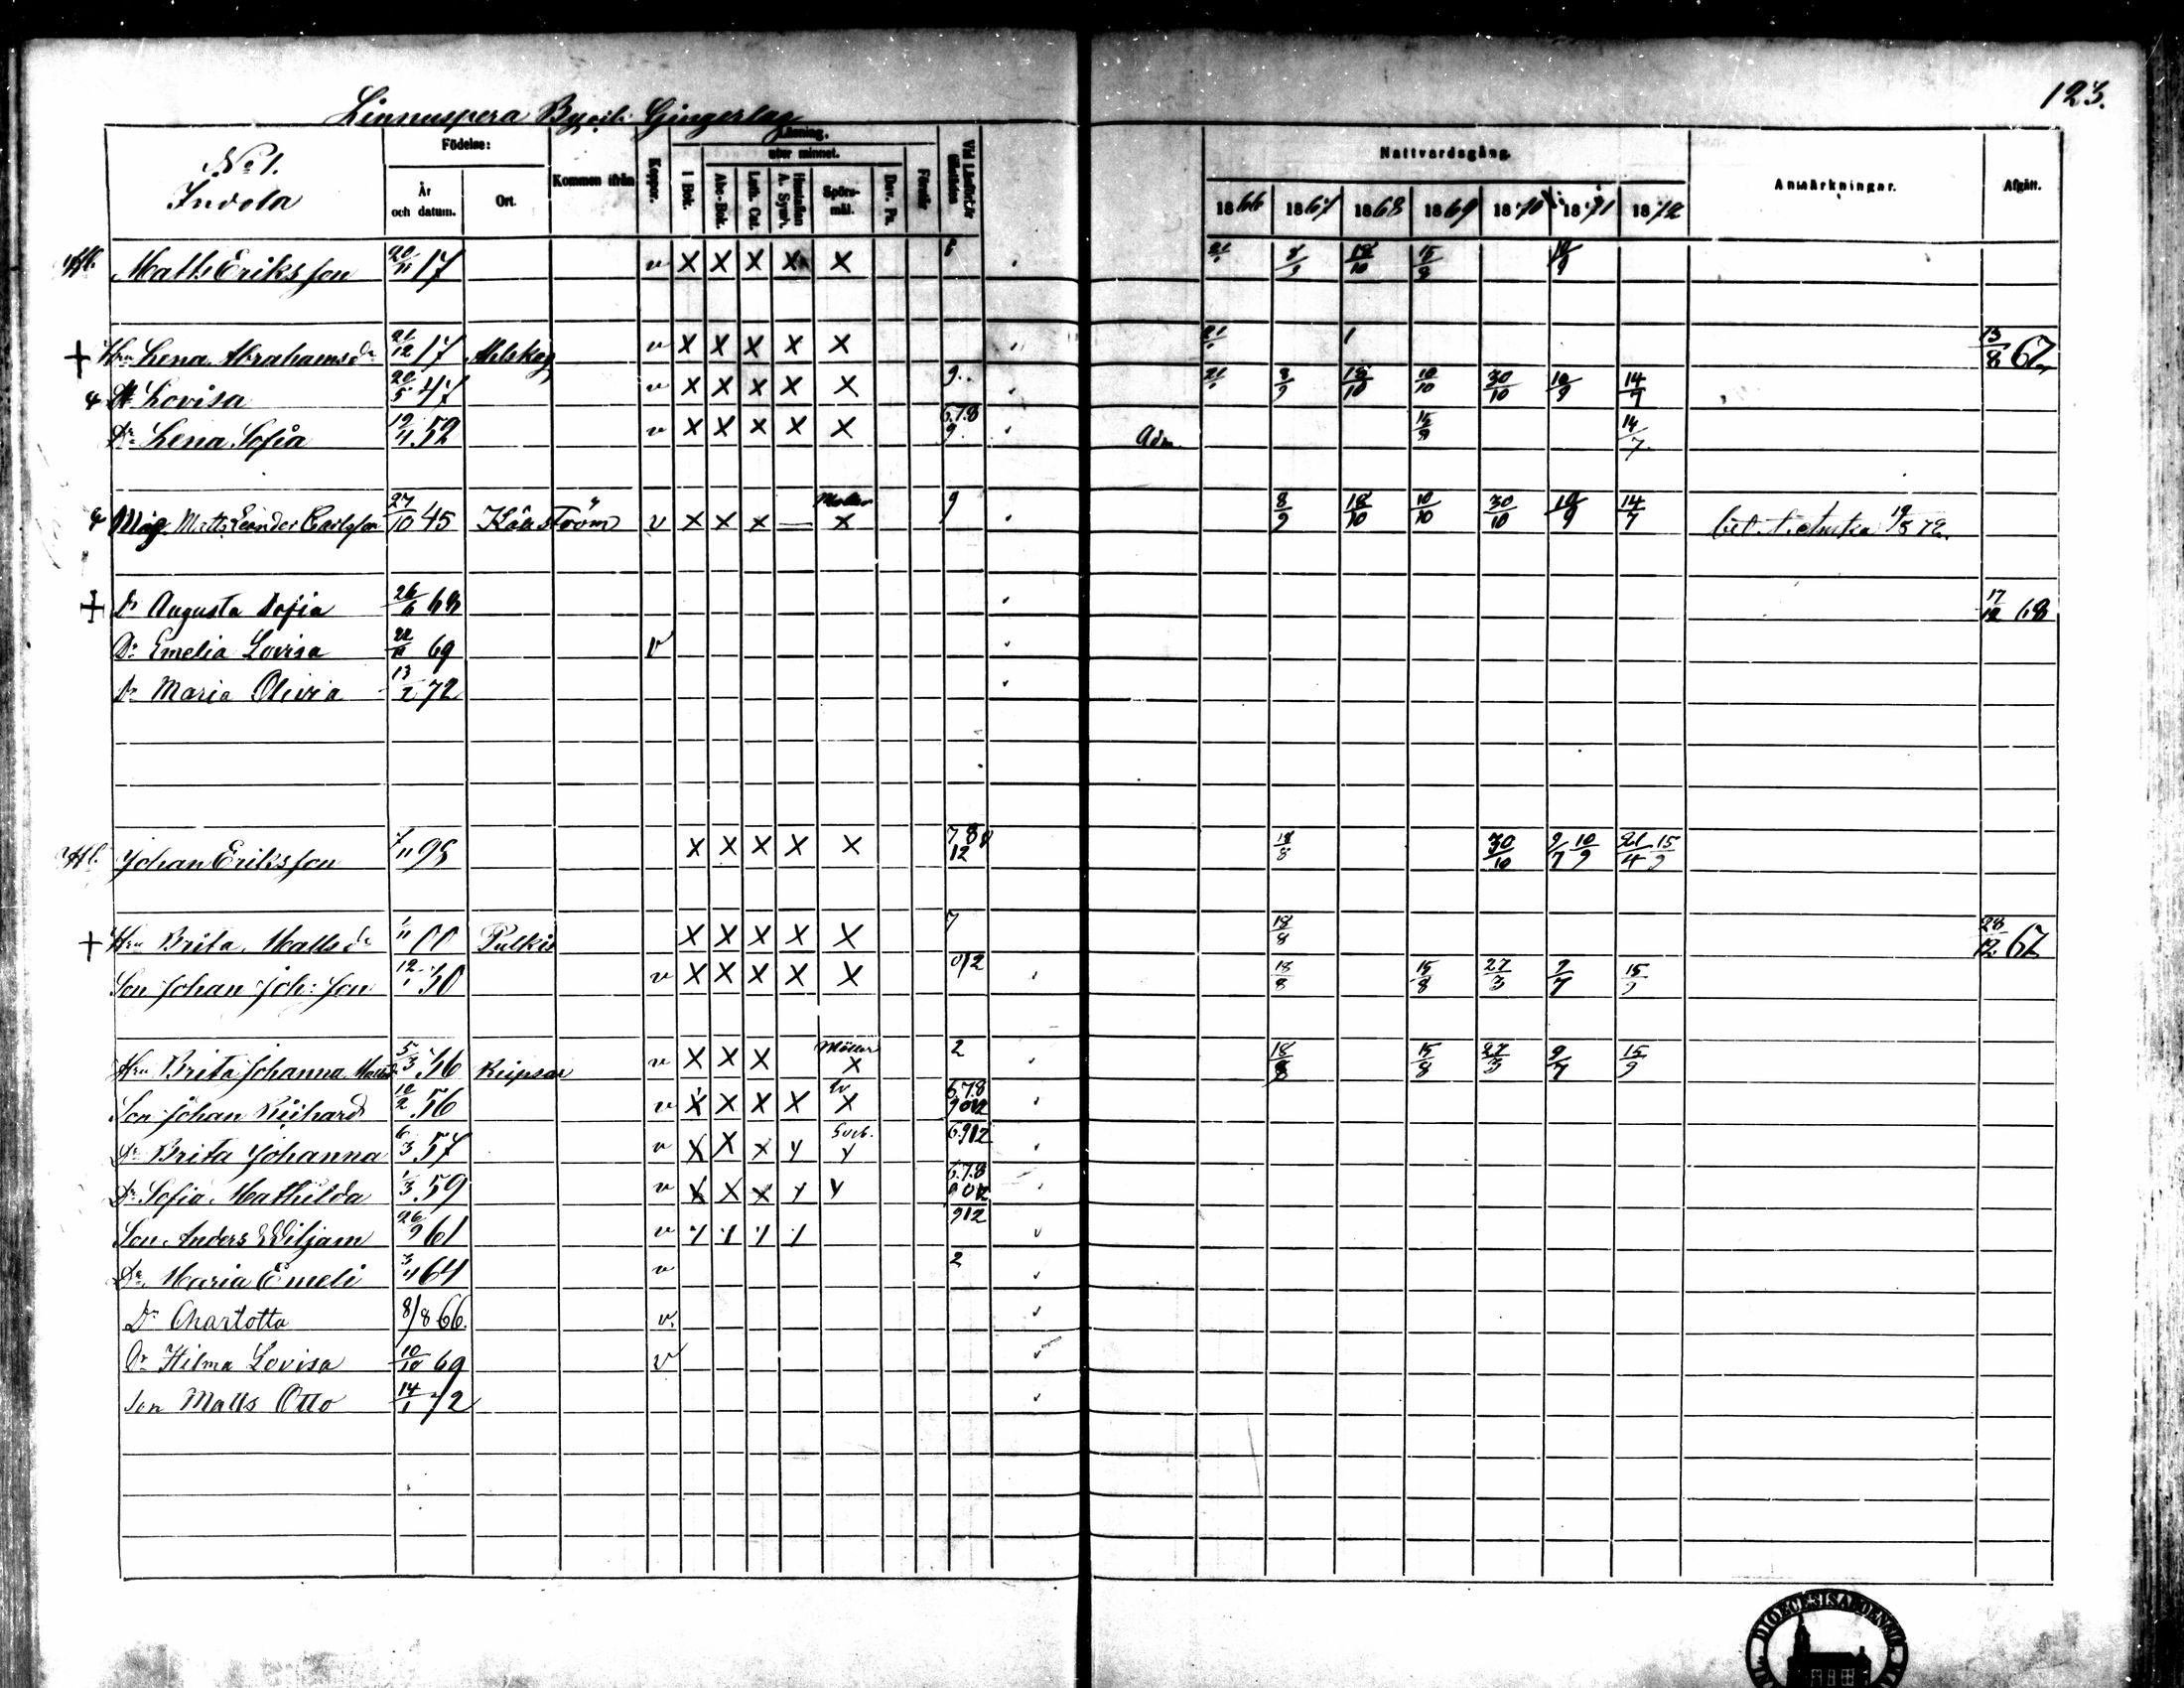 123.
Linnuspera By och Gingerlag
No 1.
Indola
Födelse:
År och datum.
Ort.
Kommen ifrån
Koppor.
Läsning.
I Bok.
utur minnet.
Abc-Bok.
Luth. Cat.
Hustaflan A. Symb.
Spörsmål.
Dav. Ps.
Förstår
Nattvardsgång.
1866 1867 1868 1869 1870 1871 1872
Anmärkningar.
Afgått.
Matts Eriksson 20/11 17 v X X X X X 18/10 15/8
+ Hu Lena Abrahamsdr 21/12 17 Ahlskog v X X X X X 13/8 67
Dr Lovisa 20/5 47 v X X X X X 9 8/9 18/10 10/10 30/10 10/9 14/7
Dr Lena Sofia 19/4 52 v X X X X X 6.7.8 9 Adm. 15/8 14/7
Måg Matts Leander Carlsson 27/10 45 Kållström v X X X — Möller X 9 8/9 18/10 10/10 30/10 10/9 14/7 19/5 72.
+ Dr Augusta Sofia 26/6 68 17/12 68
Dr Emelia Lovisa 69 v
Dr Maria Olivia 13/2 72
Johan Eriksson 98 X X X X X 7.8 12 18/8 30/10 9/7 10/9 21/4 15/9
+ Hu Brita Mattsdr 1/11 00 Pulkis X X X X X 7 18/8 28/12 67
Son Johan Joh:son 12/1 30 v X X X X X 0/2 18/8 15/8 27/3 9/7 15/9
Hu Brita Johanna Mattsdr 5/3 36 Reipsar v X X X Möller X 2 18/8 15/8 27/3 9/7 15/9
Son Johan Richard 10/2 56 v X X X X X 6.7.8 9012
Dr Brita Johanna 6/3 57 v X X X Y Y 6.912
Dr Sofia Mathilda 1/3 59 v X X X Y Y 6.7.8 9012
Son Anders Wiljam 26/9 61 v 912
Dr Maria Emeli 3/4 64 v 2
Dr Charlotta 8/8 66. v.
Dr Hilma Lovisa 10/10 69 v
Son Matts Otto 14/1 72
DIOECESIS ABOENSIS